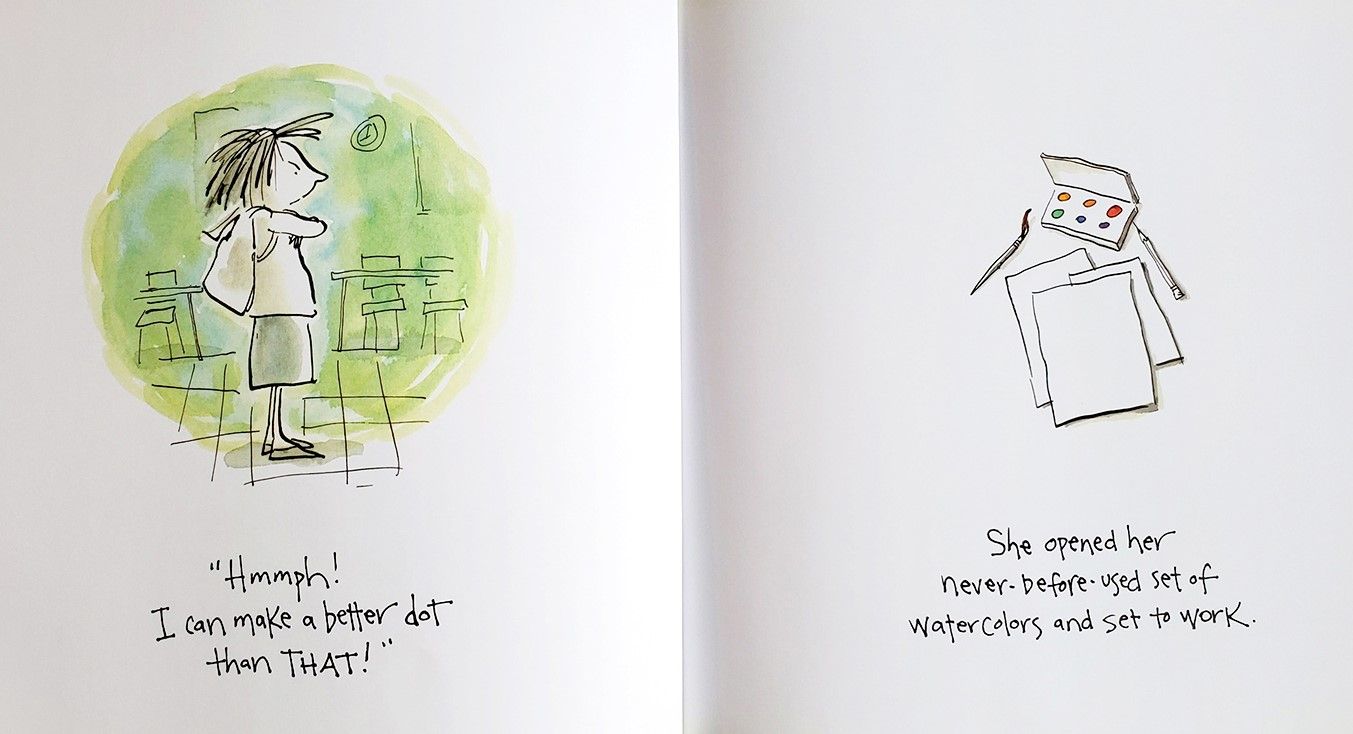 "Hmmph!
I can make a better dot
than THAT!"
She opened her
never-before-used set of
watercolors and set to work.